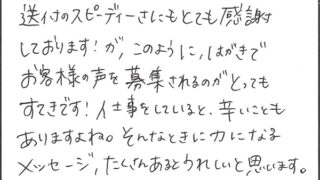 送付のスピーディーさにもとても感謝
しております！が、このように、はがきで
お客様の声を募集されるのがとっても
すてきです！仕事をしていると、辛いことも
ありますよね。そんなときに力になる
メッセージ、たくさんあるとうれしいと思います。